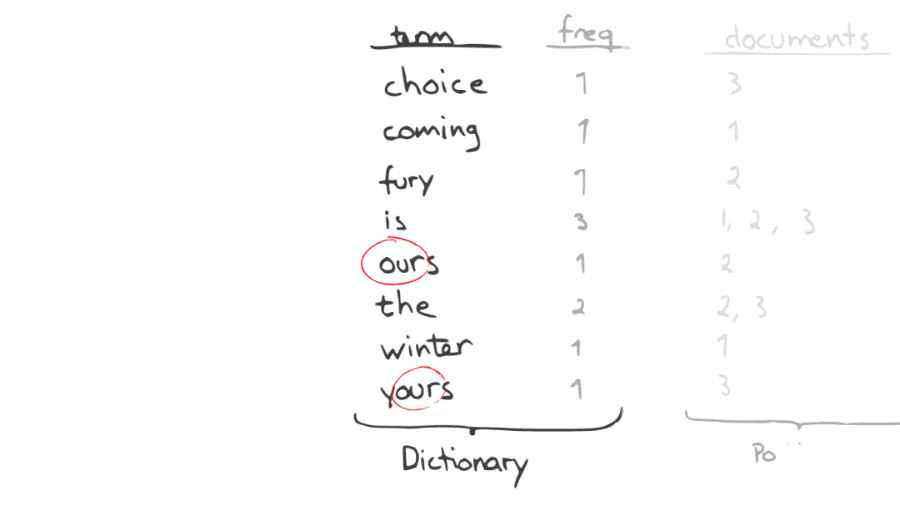 term freq documents
choice 1 3
coming 1 1
fury 1 2
is 3 1, 2, 3
ours 1 2
the 2 2, 3
winter 1 1
yours 1 3
Dictionary Po